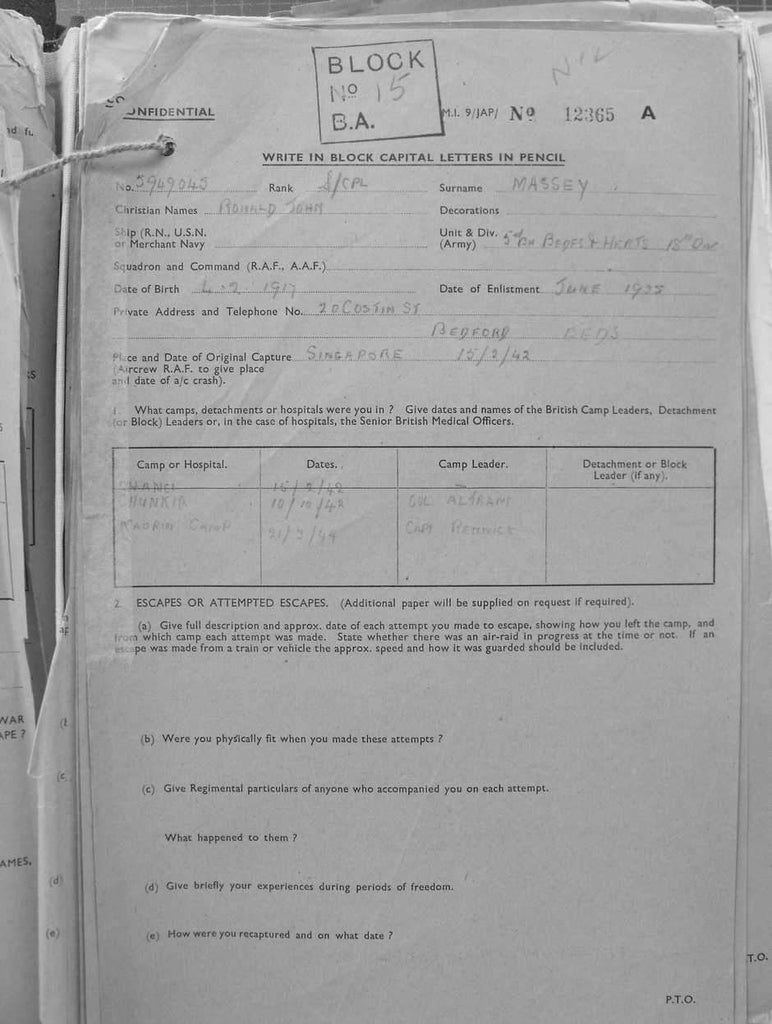 BLOCK
No 15
B.A.
NIL
CONFIDENTIAL
M.I. 9/JAP/ No 12365 A
WRITE IN BLOCK CAPITAL LETTERS IN PENCIL
No. 5949045 Rank L/CPL Surname MASSEY
Christian Names RONALD JOHN Decorations
Ship (R.N., U.S.N. Unit & Div.
or Merchant Navy (Army) 5th BN BEDFS & HERTS 18th DIV
Squadron and Command (R.A.F., A.A.F.)
Date of Birth 4 - 2 1917 Date of Enlistment JUNE 1935
Private Address and Telephone No. 20 COSTIN ST
BEDFORD BEDS
Place and Date of Original Capture SINGAPORE 15/2/42
(Aircrew R.A.F. to give place
and date of a/c crash).
1. What camps, detachments or hospitals were you in ? Give dates and names of the British Camp Leaders, Detachment
(or Block) Leaders or, in the case of hospitals, the Senior British Medical Officers.
Camp or Hospital. Dates. Camp Leader. Detachment or Block
Leader (if any).
15/2/42
10/10/42 COL
CAMP 21/3/44 CAPT
2. ESCAPES OR ATTEMPTED ESCAPES. (Additional paper will be supplied on request if required).
(a) Give full description and approx. date of each attempt you made to escape, showing how you left the camp, and
from which camp each attempt was made. State whether there was an air-raid in progress at the time or not. If an
escape was made from a train or vehicle the approx. speed and how it was guarded should be included.
(b) Were you physically fit when you made these attempts ?
(c) Give Regimental particulars of anyone who accompanied you on each attempt.
What happened to them ?
(d) Give briefly your experiences during periods of freedom.
(e) How were you recaptured and on what date ?
P.T.O.
WAR
APE ?
AMES.
(d)
(e)
T.O.